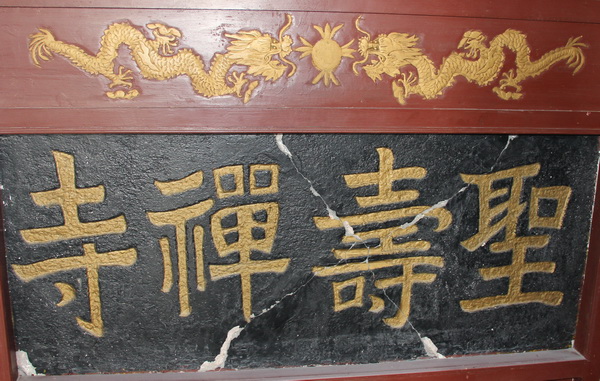 聖壽禪寺